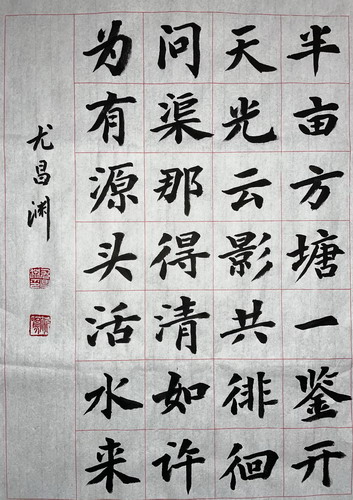 半亩方塘一鉴开
天光云影共徘徊
问渠那得清如许
为有源头活水来
尤昌渊